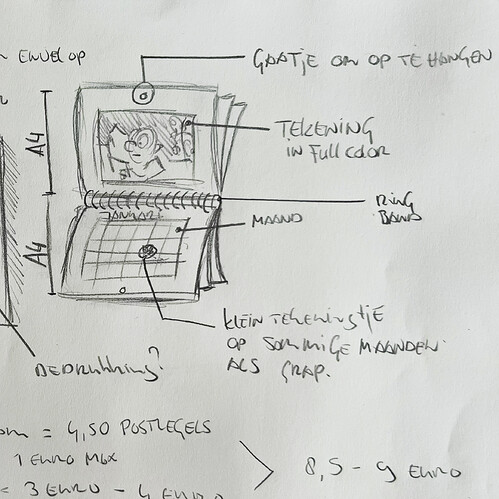 ENVELOP
GAATJE OM OP TE HANGEN
A4
TEKENING
IN FULL COLOR
RING
BAND
JANUARI
MAAND
A4
KLEIN TEKENINGTJE
OP SOMMIGE MAANDEN
ALS GRAP.
BEDRUKKING?
= 4,50 POSTZEGELS
1 EURO MAX
= 3 EURO - 4 EURO
8,5 - 9 EURO